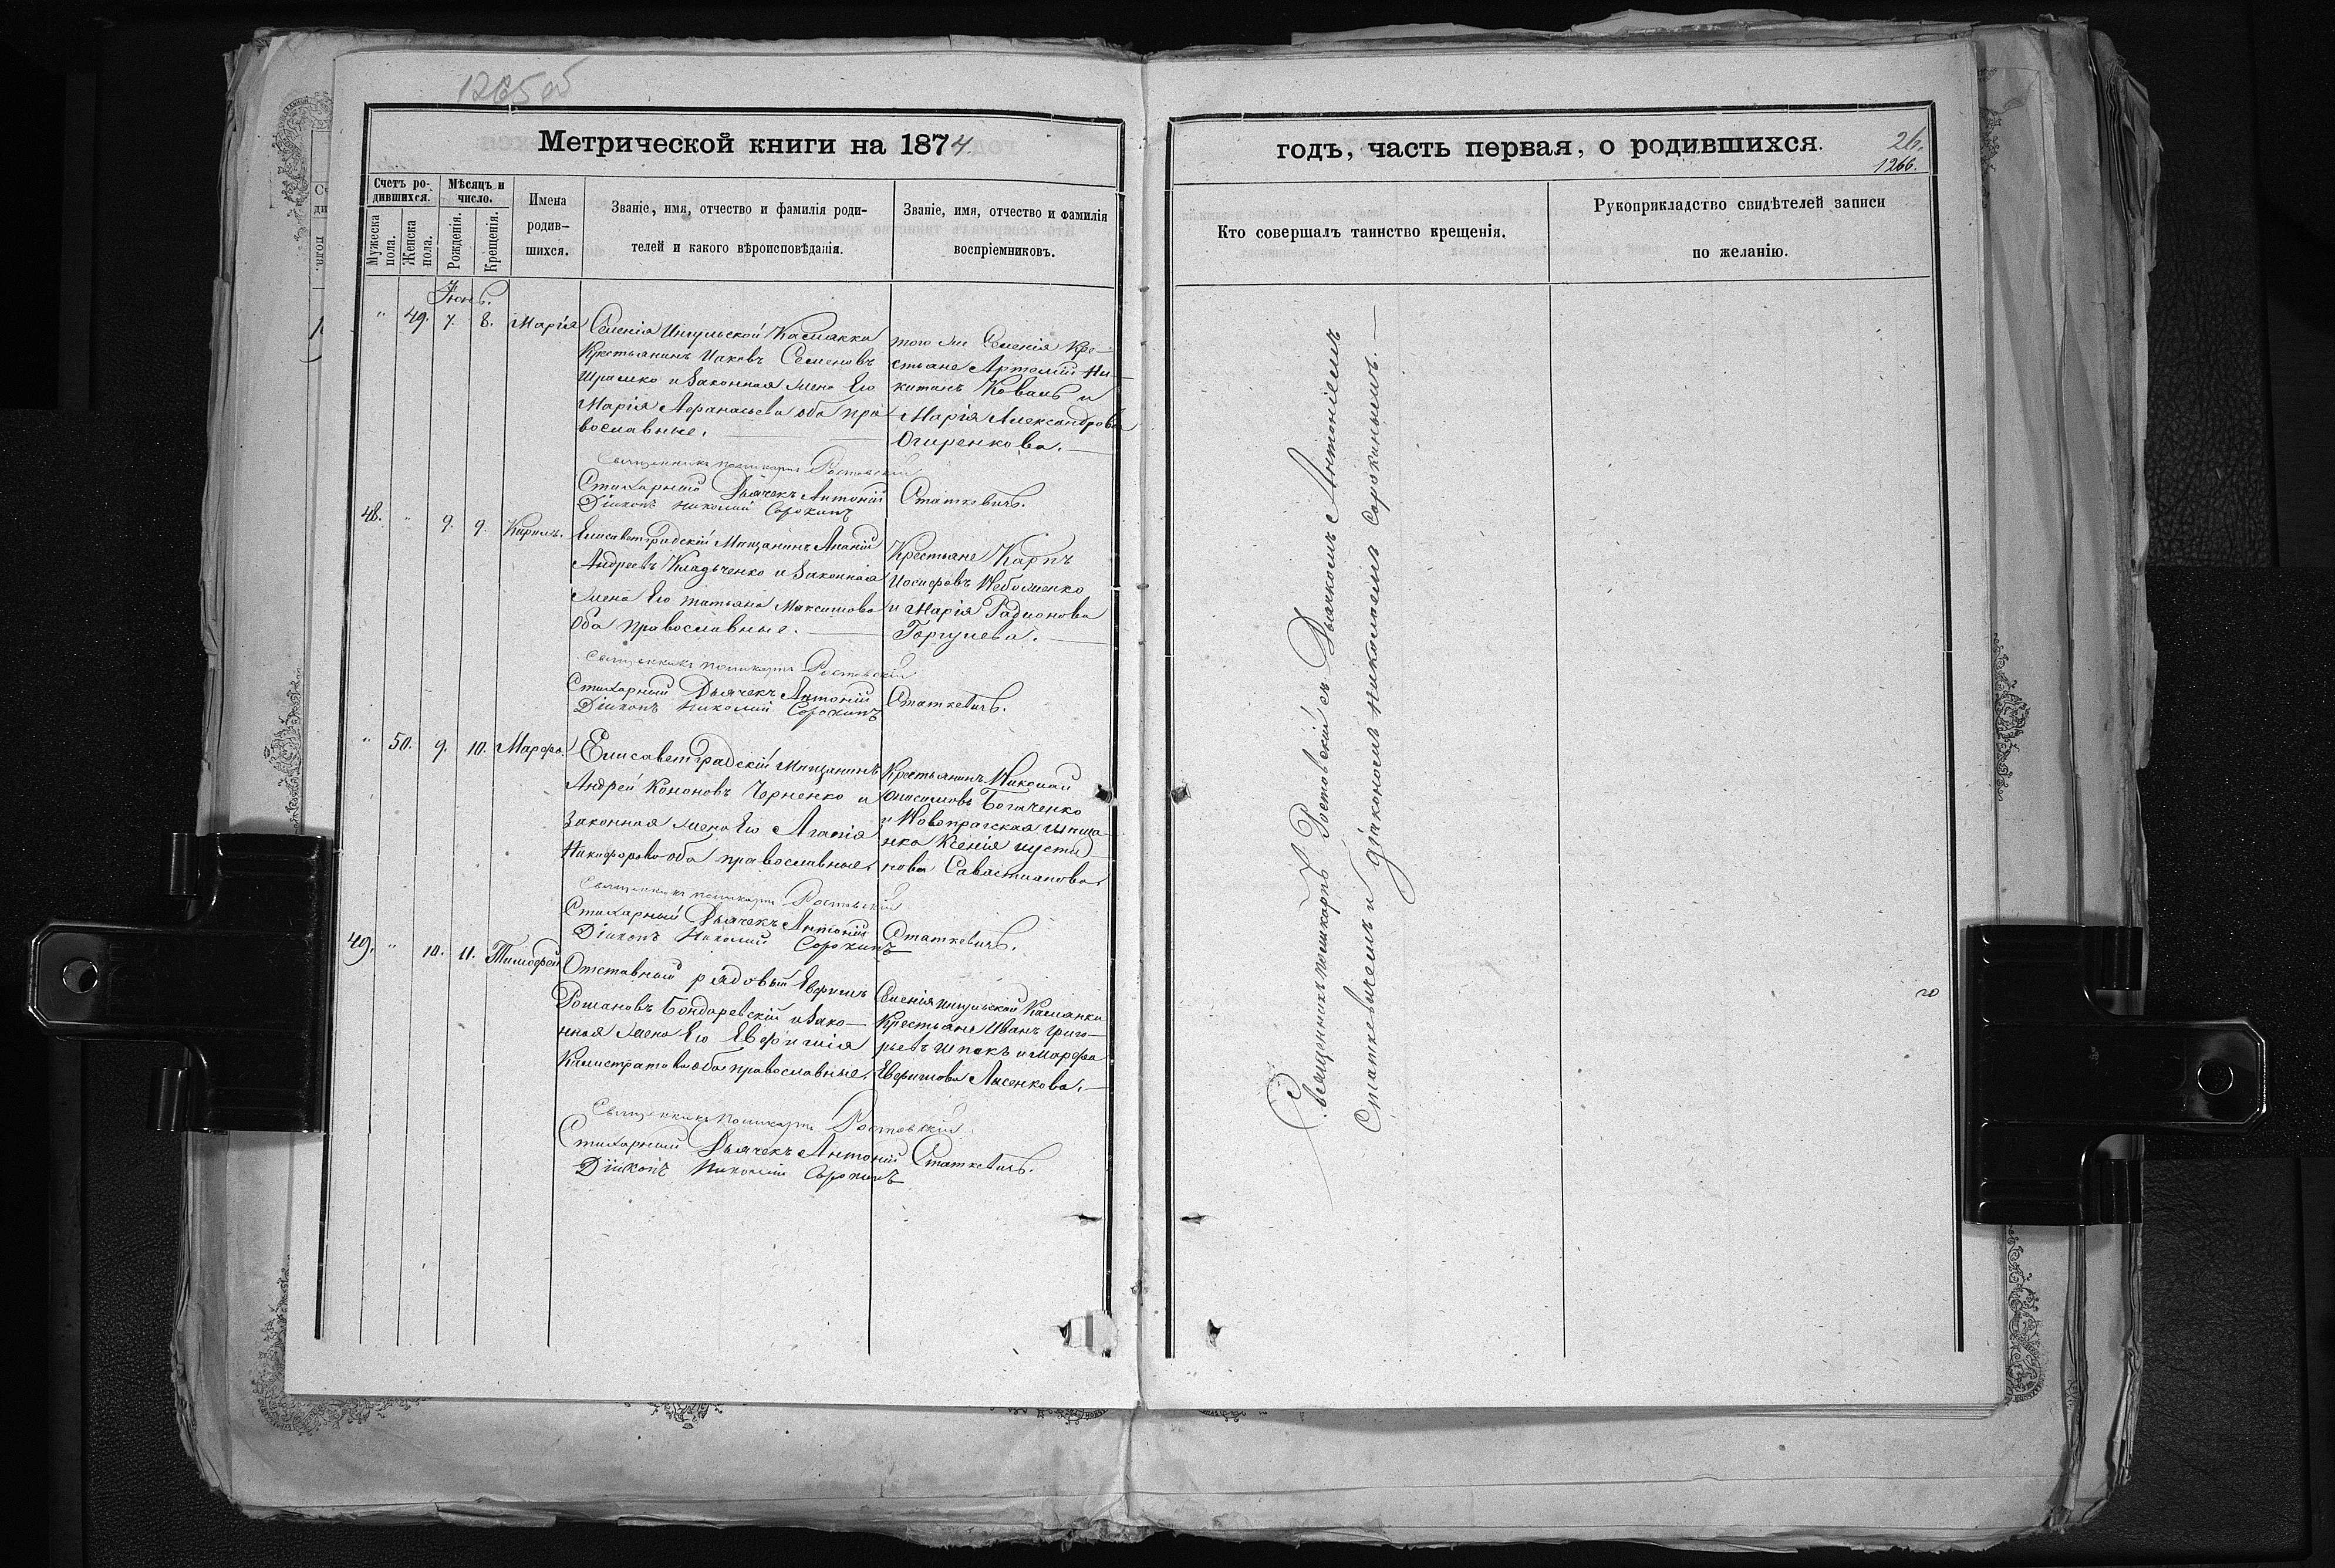 1265 об
Метрической книги на 1874
Счетъ ро-
дившихся.
Мѣсяцъ и
число.
Мужеска
пола.
Женска
пола.
Рожденія.
Крещенія.
Имена
родив-
шихся.
Званіе, имя, отчество и фамилія роди-
телей и какого вѣроисповѣданія.
Званіе, имя, отчество и фамилія
воспріемниковъ.
Іюнь.
" 49. 7. 8. Марія
Селенія Ингульской Каменки
Крестьянинъ Иаковъ Семеновъ
и Законная жена Его
Марія Афанасьева оба пра
вославные.
того же Селенія Кре-
стьяне Артемій Ни-
китинъ Коваль и
Марія Александрова
Огиренкова.
Священникъ Поликарпъ Ростовскій
Стихарный Дьячекъ Антоній Статкевичъ.
Діаконъ Николай Сорокинъ
48. " 9. 9. Кирилъ.
Елисаветградскій Мѣщанинъ Ананій
Андреевъ Кладьченко и Законная
жена Его Татьяна Максимова
Оба православные.
Крестьяне Карпъ
Иосифовъ
и Марія Радионова
Горгулева.
Священникъ Поликарпъ Ростовскій
Стихарный Дьячекъ Антоній Статкевичъ.
Діаконъ Николай Сорокинъ
" 50. 9. 10. Марфа.
Елисаветградскій Мѣщанинъ
Андрей Кононовъ Черненко и
Законная жена Его Агапія
Никифорова оба православные.
Крестьянинъ Николай
Онисимовъ Богаченко
и Новопрагская мѣща-
нка Ксенія Іусти-
нова Савастианова.
Священникъ Поликарпъ Ростовскій
Стихарный Дьячекъ Антоній Статкевичъ.
Діаконъ Николай Сорокинъ
49. " 10. 11. Тимофей
Отставной рядовый Евфимъ
Романовъ Бондаревскій и Зако-
нная жена Его Евфимія
Калистратова оба православные.
Селенія Ингульской Каменки
Крестьяне Иванъ Григо-
рьевъ Шпакъ и Марфа
Евфимова Лисенкова.
Священникъ Поликарпъ Ростовскій
Стихарный Дьячекъ Антоній Статкевичъ.
Діаконъ Николай Сорокинъ
годъ, часть первая, о родившихся.
26.
1266.
Кто совершалъ таинство крещенія.
Рукоприкладство свидѣтелей записи
по желанію.
Священникъ Поликарпъ Ростовскій съ Дьячкомъ Антоніемъ
Статкевичемъ и діакономъ Николаемъ Сорокинымъ.